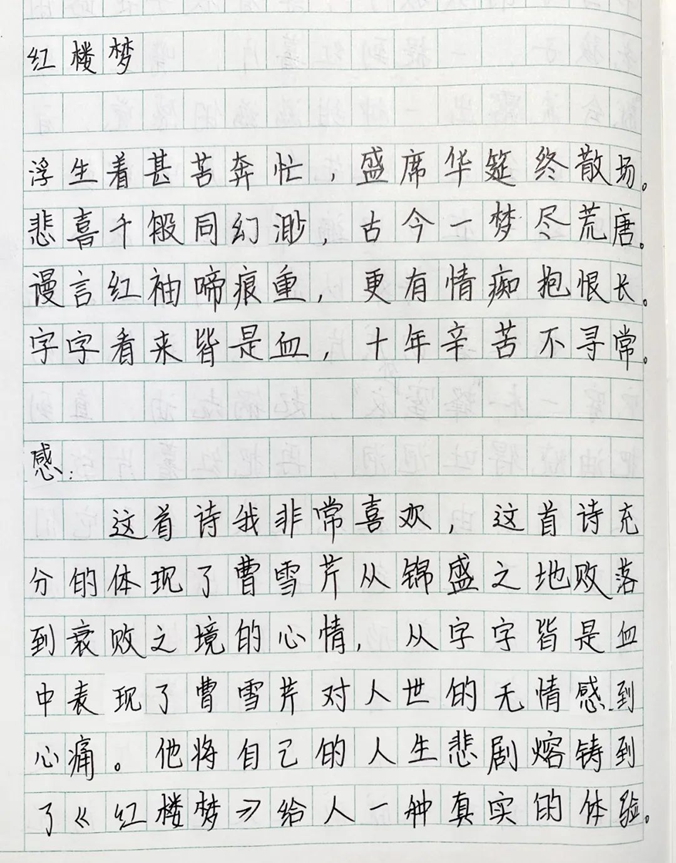 红楼梦
浮生着甚苦奔忙，盛席华筵终散场。
悲喜千般同幻渺，古今一梦尽荒唐。
谩言红袖啼痕重，更有情痴抱恨长。
字字看来皆是血，十年辛苦不寻常。
感：
这首诗我非常喜欢，这首诗充
分的体现了曹雪芹从锦盛之地败落
到衰败之境的心情，从字字皆是血
中表现了曹雪芹对人世的无情感到
心痛。他将自己的人生悲剧熔铸到
了《红楼梦》给人一种真实的体验。